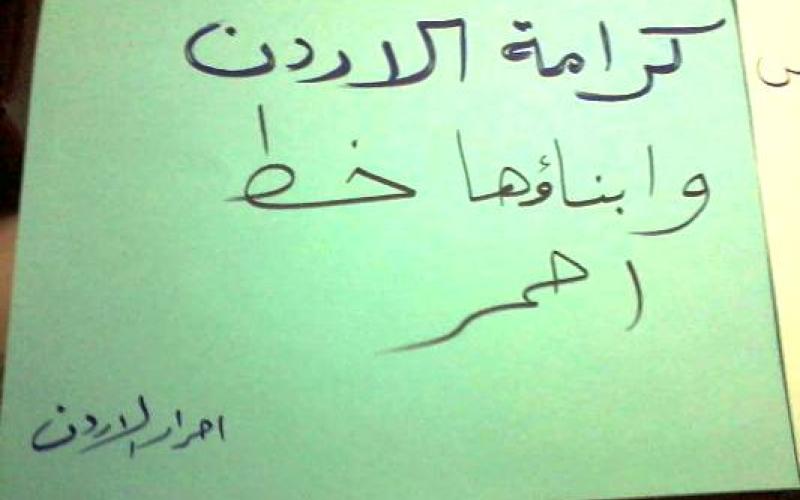 كرامة الاردن
وابناؤها خط
احمر
احرار الاردن